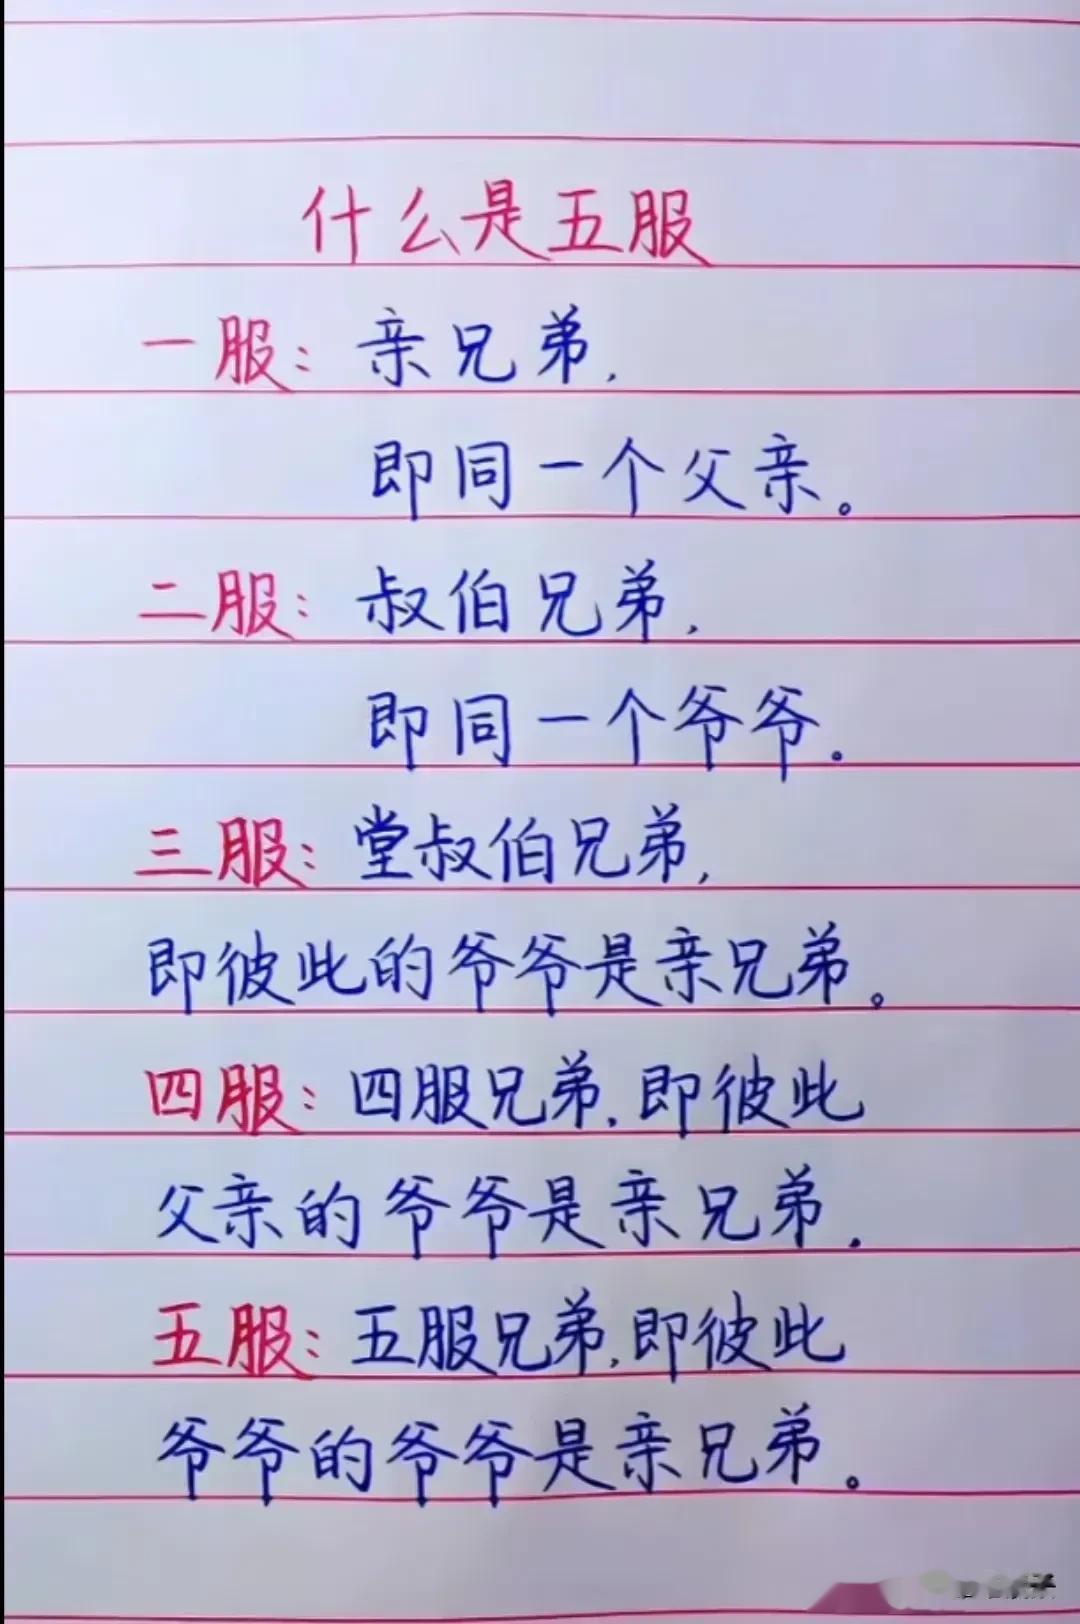 什么是五服
一服：亲兄弟，
即同一个父亲。
二服：叔伯兄弟，
即同一个爷爷。
三服：堂叔伯兄弟，
即彼此的爷爷是亲兄弟。
四服：四服兄弟，即彼此
父亲的爷爷是亲兄弟．
五服：五服兄弟，即彼此
爷爷的爷爷是亲兄弟。